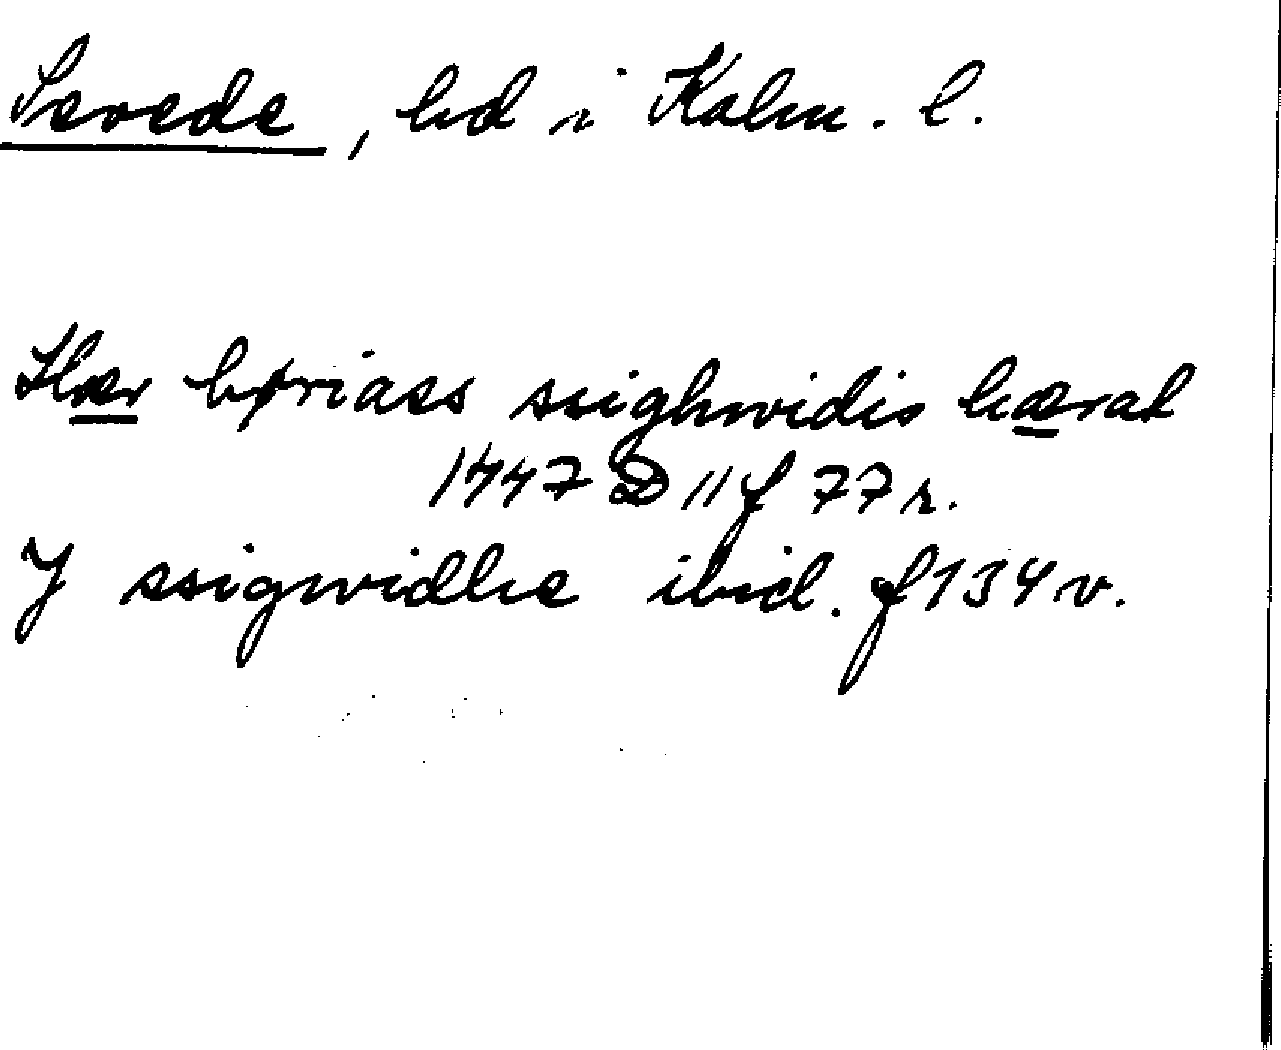 Sevede, hd i Kalm. l.
Hær børiass ssighwidis hærat
1447 D 11 f 77 r.
J ssigwidhe ibid. f 134 v.